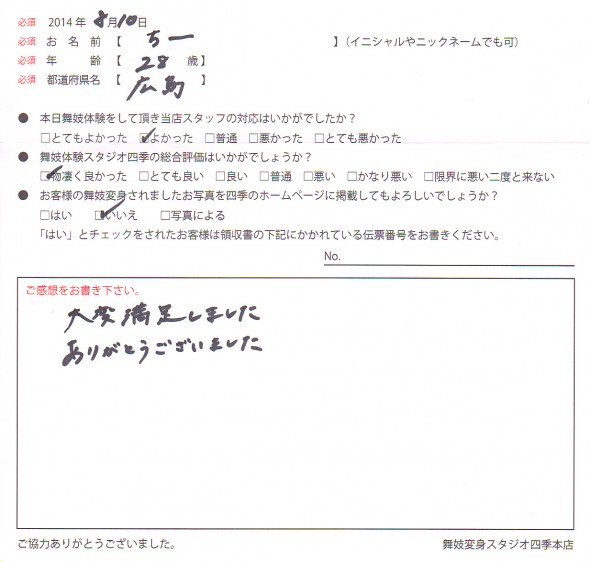 必須 2014年 8月10日
必須 お名前【 ちー 】(イニシャルやニックネームでも可)
必須 年齢【 28 歳】
必須 都道府県名【 広島 】
● 本日舞妓体験をして頂き当店スタッフの対応はいかがでしたか?
□とてもよかった ☑よかった □普通 □悪かった □とても悪かった
● 舞妓体験スタジオ四季の総合評価はいかがでしょうか?
☑物凄く良かった □とても良い □良い □普通 □悪い □かなり悪い □限界に悪い二度と来ない
● お客様の舞妓変身されましたお写真を四季のホームページに掲載してもよろしいでしょうか?
□はい ☑いいえ □写真による
「はい」とチェックをされたお客様は領収書の下記にかかれている伝票番号をお書きください。
No.
ご感想をお書き下さい。
大変満足しました
ありがとうございました
ご協力ありがとうございました。 舞妓変身スタジオ四季本店